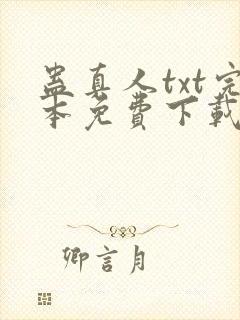 蛊真人txt完
本免費下載
卿言月